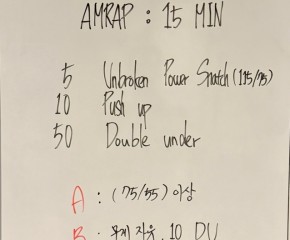 AMRAP : 15 MIN
5 Unbroken Power Snatch (115/75)
10 Push up
50 Double under
A : (75/55) 이상
B : 무게 자유, 10 DU